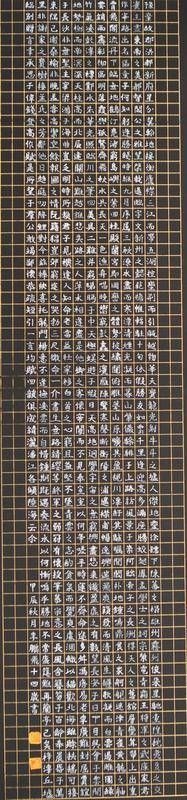 豫章故郡洪都新府星分翼軫地接衡廬襟三江而帶五湖控蠻荊而引甌越物華天寶龍光射牛斗之墟人傑地靈徐孺下陳蕃之榻雄州霧列俊采星馳臺隍枕夷夏之交
賓主盡東南之美都督閻公之雅望棨戟遙臨宇文新州之懿範襜帷暫駐十旬休假勝友如雲千里逢迎高朋滿座騰蛟起鳳孟學士之詞宗紫電青霜王將軍之武庫家君
作宰路出名區童子何知躬逢勝餞時維九月序屬三秋潦水盡而寒潭清煙光凝而暮山紫儼驂騑於上路訪風景於崇阿臨帝子之長洲得天人之舊館層巒聳翠上出重
霄飛閣流丹下臨無地鶴汀鳧渚窮島嶼之縈迴桂殿蘭宮即岡巒之體勢披繡闥俯雕甍山原曠其盈視川澤紆其駭矚閭閻撲地鐘鳴鼎食之家舸艦迷津青雀黃龍之
舳雲銷雨霽彩徹區明落霞與孤鶩齊飛秋水共長天一色漁舟唱晚響窮彭蠡之濱雁陣驚寒聲斷衡陽之浦遙襟甫暢逸興遄飛爽籟發而清風生纖歌凝而白雲遏睢園綠
竹氣凌彭澤之樽鄴水朱華光照臨川之筆四美具二難并窮睇眄於中天極娛遊於暇日天高地迥覺宇宙之無窮興盡悲來識盈虛之有數望長安於日下目吳會於雲
間地勢極而南溟深天柱高而北辰遠關山難越誰悲失路之人萍水相逢盡是他鄉之客懷帝閽而不見奉宣室以何年嗟乎時運不齊命途多舛馮唐易老李廣難封屈賈誼
於長沙非無聖主竄梁鴻於海曲豈乏明時所賴君子見機達人知命老當益壯寧移白首之心窮且益堅不墜青雲之志酌貪泉而覺爽處涸轍以猶歡北海雖賒扶搖可接
東隅已逝桑榆非晚孟嘗高潔空餘報國之情阮籍猖狂豈效窮途之哭勃三尺微命一介書生無路請纓等終軍之弱冠有懷投筆慕宗愨之長風舍簪笏於百齡奉晨昏於萬
里非謝家之寶樹接孟氏之芳鄰他日趨庭叨陪鯉對今茲捧袂喜托龍門楊意不逢撫凌雲而自惜鍾期既遇奏流水以何慚嗚乎勝地不常盛筵難再蘭亭已矣梓澤丘墟
臨別贈言幸承恩於偉餞登高作賦是所望於群公敢竭鄙懷恭疏短引一言均賦四韻俱成請灑潘江各傾陸海云尒
甲辰秋月李鵬飛四歲書